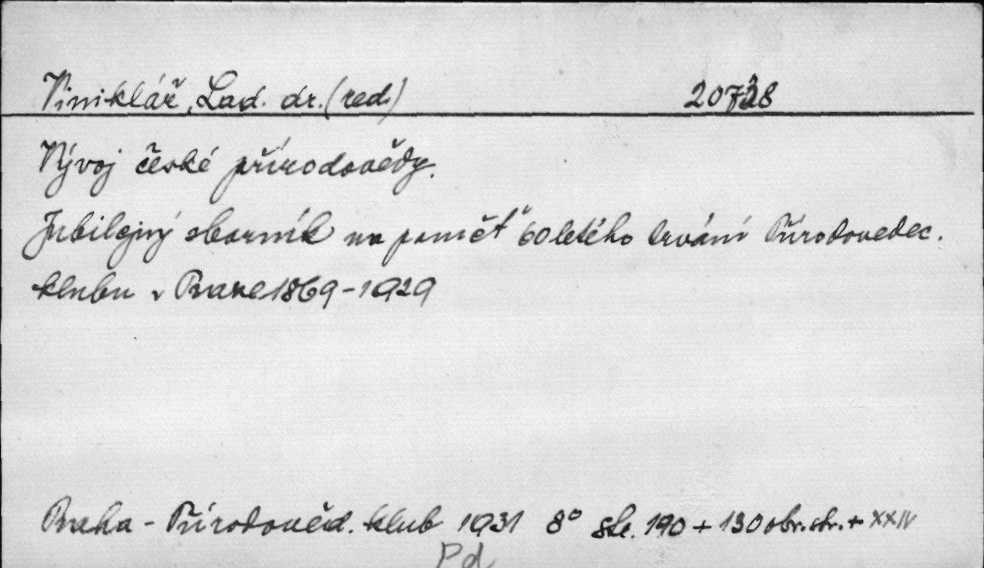 Viniklář, Lad. dr. (red.) 20738
Vývoj české přírodovědy.
Jubilejný sborník na paměť 60letého trvání Přírodovedec.
klubu v Praze 1869-1929
Praha - Přírodověd. klub 1931 8° str. 190 + 130 obr. str. + XXIV
Pd